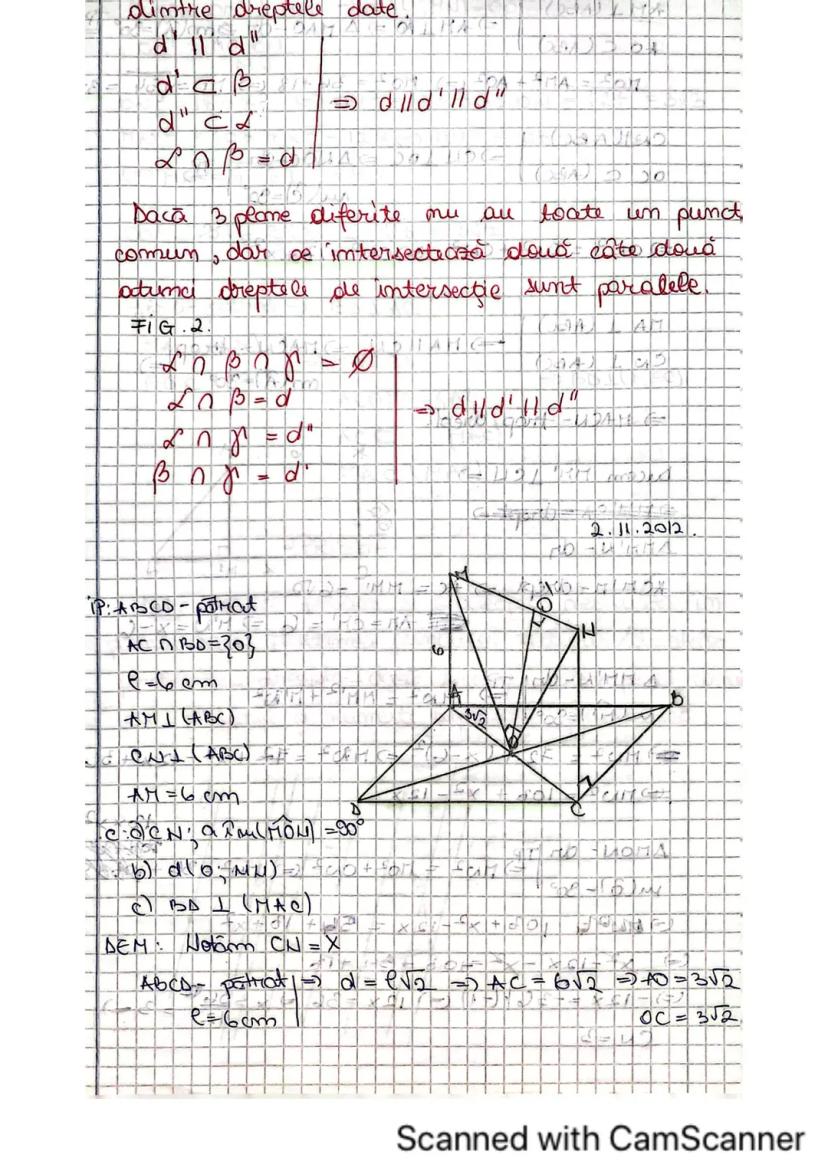 dimtre dreptele date.
d' || d"
d' ⊂ β
d" ⊂ α
α ∩ β = d
⇒ d || d' || d"
Dacă 3 plane diferite nu au toate un punct
comun, dar se intersectează două câte două
atunci dreptele de intersecție sunt paralele.
FIG. 2.
α ∩ β ∩ γ = ∅
α ∩ β = d
α ∩ γ = d"
β ∩ γ = d'
⇒ d || d' || d"
2.11.2012.
M
O'
N
6
A
B
3√2
O
D
C
iP: ABCD - pătrat
AC ∩ BD = {O}
l = 6 cm
AM ⊥ (ABC)
CN ⊥ (ABC)
AM = 6 cm
C: a) CN; a î m(MÔN) = 90°
b) d(O; MN)
c) BD ⊥ (MAC)
DEM: Notăm CN = X
ABCD - pătrat ⇒ d = l√2 ⇒ AC = 6√2 ⇒ AO = 3√2
l = 6cm OC = 3√2
Scanned with CamScanner